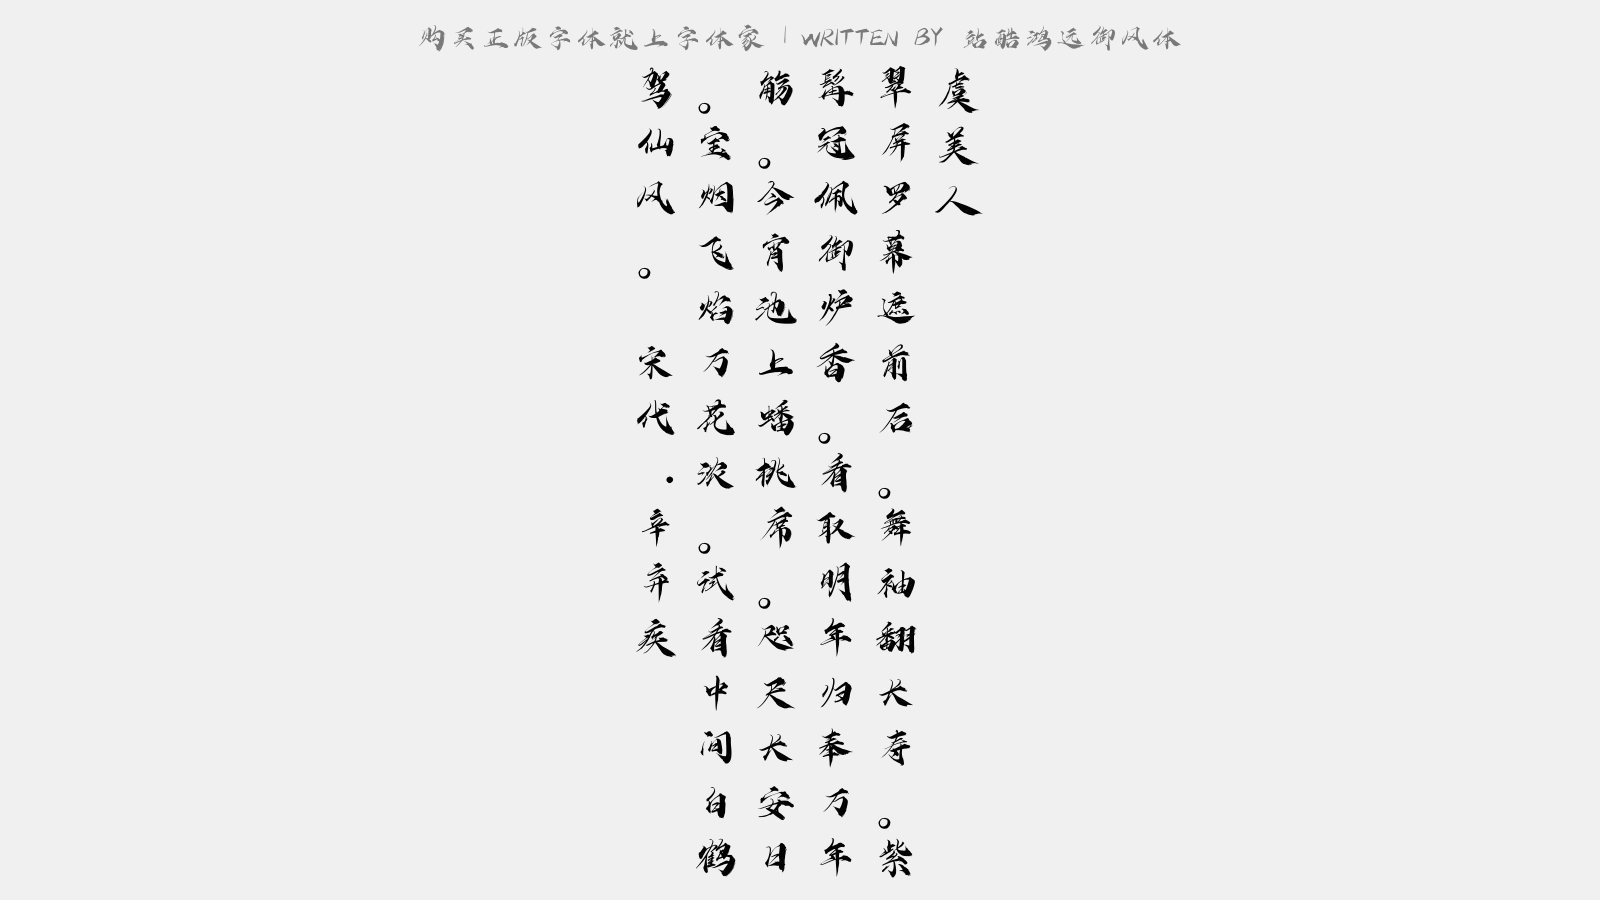 购买正版字体就上字体家 | WRITTEN BY 站酷鸿远御风体
虞美人
翠屏罗幕遮前后。舞袖翻长寿。紫
髯冠佩御炉香。看取明年归奉万年
觞。今宵池上蟠桃席。咫尺长安日
。宝烟飞焰万花浓。试看中间白鹤
驾仙风。 宋代·辛弃疾